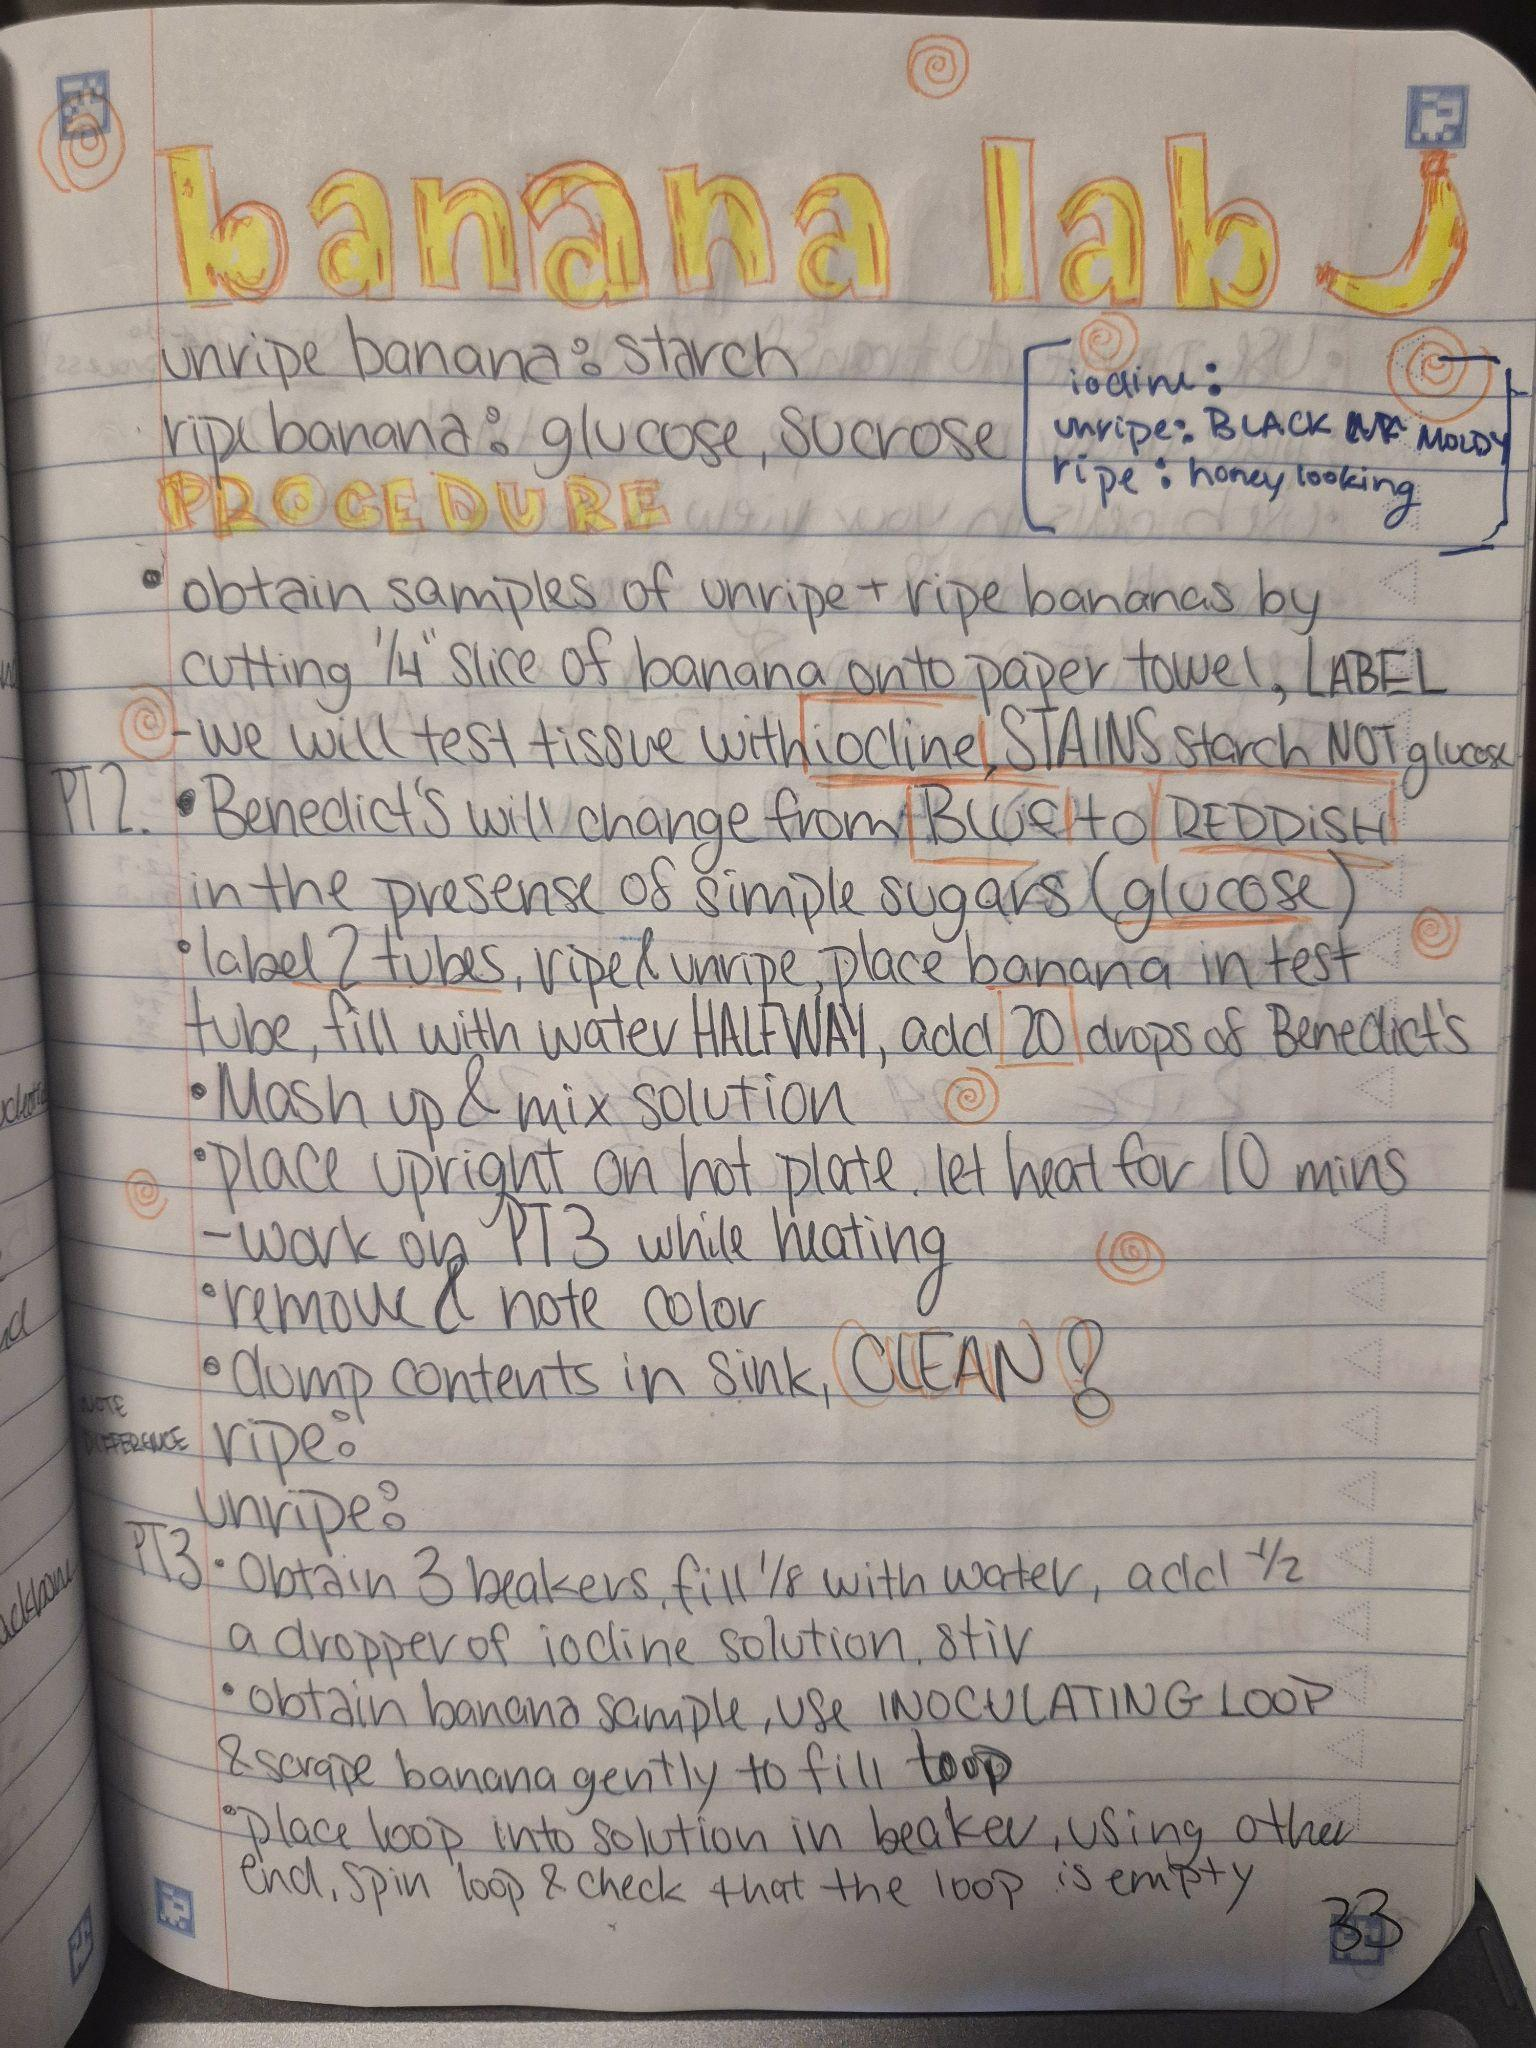 banana lab
unripe banana: starch
ripe banana: glucose, sucrose
iodine:
unripe: BLACK MOLDY
ripe: honey looking
PROCEDURE
• obtain samples of unripe + ripe bananas by
cutting 1/4" slice of banana onto paper towel, LABEL
- we will test tissue with iodine, STAINS starch NOT glucose
PT2. • Benedict's will change from BLUE to REDDISH
in the presense of simple sugars (glucose)
• label 2 tubes, ripe & unripe, place banana in test
tube, fill with water HALFWAY, add 20 drops of Benedict's
• Mash up & mix solution
• place upright on hot plate. let heat for 10 mins
- work on PT3 while heating
• remove & note color
• dump contents in sink, CLEAN!
NOTE
DIFFERENCE
ripe:
unripe:
PT3 • Obtain 3 beakers, fill 1/8 with water, add 1/2
a dropper of iodine solution. stir
• obtain banana sample, use INOCULATING LOOP
& scrape banana gently to fill loop
• place loop into solution in beaker, using other
end, spin loop & check that the loop is empty
33